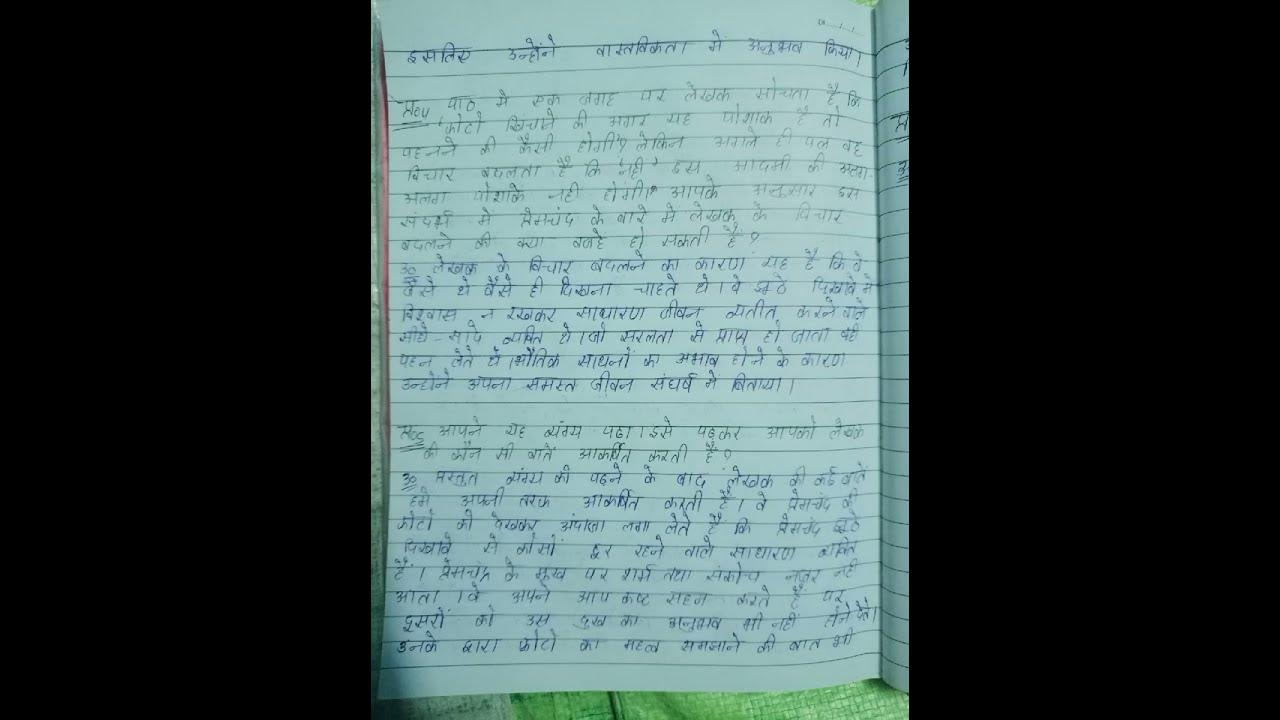 इसलिए उन्होंने वास्तविकता में अनुभव किया।
प्र०५ पाठ में एक जगह पर लेखक सोचता है कि
'फोटो खिंचाने की अगर यह पोशाक है तो
पहनने की कैसी होगी?' लेकिन अगले ही पल वह
विचार बदलता है कि 'नहीं' इस आदमी की अलग-
अलग पोशाकें नहीं होंगी।' आपके अनुसार इस
संदर्भ में प्रेमचंद के बारे में लेखक के विचार
बदलने की क्या वजहें हो सकती हैं?
उ० लेखक के विचार बदलने का कारण यह है कि वे
जैसे थे वैसे ही दिखना चाहते थे। वे झूठे दिखावे में
विश्वास न रखकर साधारण जीवन व्यतीत करने वाले
सीधे-सादे व्यक्ति थे। जो सरलता से प्राप्त हो जाता वही
पहन लेते थे। भौतिक साधनों का अभाव होने के कारण
उन्होंने अपना समस्त जीवन संघर्ष में बिताया।
प्र०६ आपने यह व्यंग्य पढ़ा। इसे पढ़कर आपको लेखक
की कौन सी बातें आकर्षित करती हैं?
उ० प्रस्तुत व्यंग्य को पढ़ने के बाद लेखक की कई बातें
हमें अपनी तरफ आकर्षित करती हैं। वे प्रेमचंद की
फोटो को देखकर अंदाजा लगा लेते हैं कि प्रेमचंद झूठे
दिखावे से कोसों दूर रहने वाले साधारण व्यक्ति
हैं। प्रेमचंद के मुख पर शर्म तथा संकोच नज़र नहीं
आता। वे अपने आप कष्ट सहन करते हैं पर
दूसरों को उस दुख का अनुभव भी नहीं होने देते।
उनके द्वारा फोटो का महत्व समझाने की बात भी